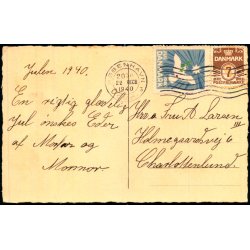 Julen 1940.
En rigtig glædelig
Jul ønskes Eder
af Mofar og
Mormor
KØBENHAVN
22 DEC
1940
DANMARK
7
Hr. o Fru A. Larsen
Holmegaardsvej 6
Charlottenlund